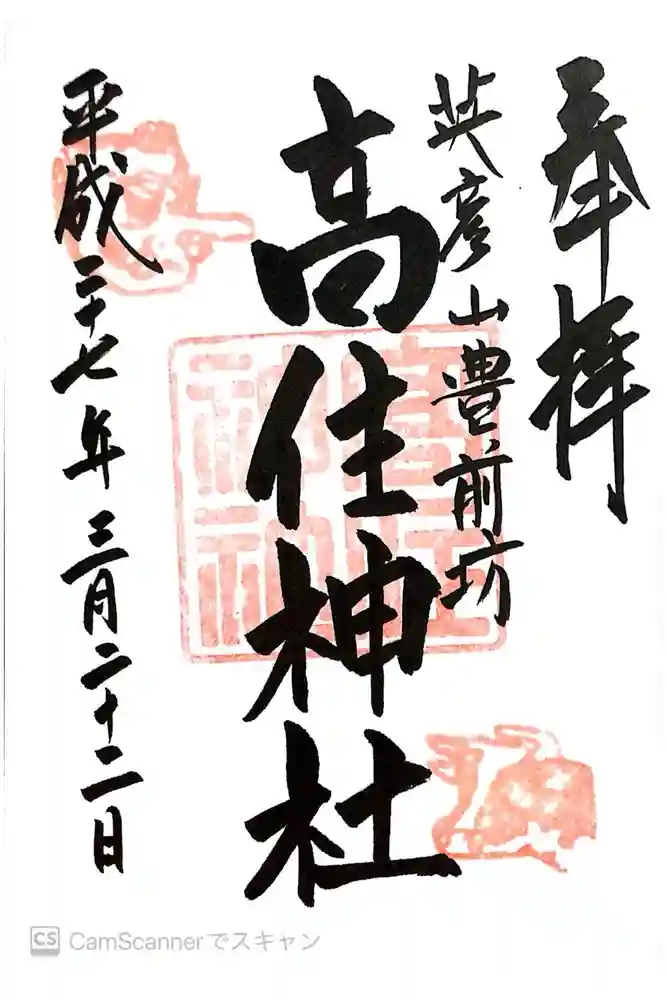 奉拝
英彦山豊前坊
高住神社
高住
神社
平成二十七年三月二十二日
CS CamScannerでスキャン